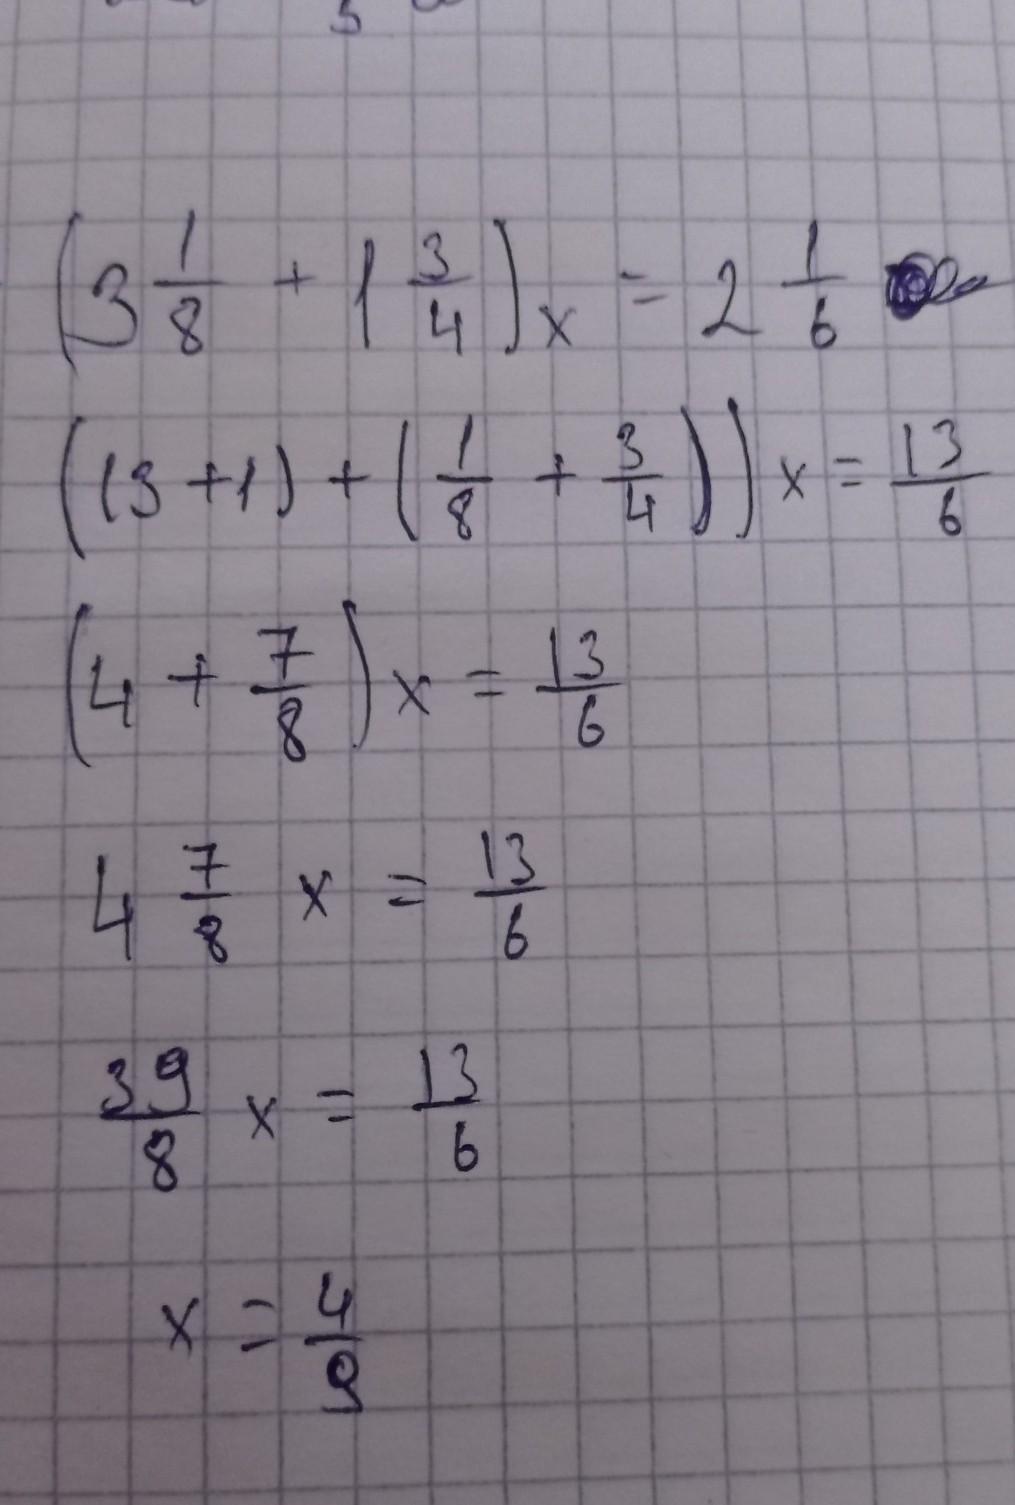 (3 1/8 + 1 3/4)x = 2 1/6
((3 + 1) + (1/8 + 3/4))x = 13/6
(4 + 7/8)x = 13/6
4 7/8 x = 13/6
39/8 x = 13/6
x = 4/9